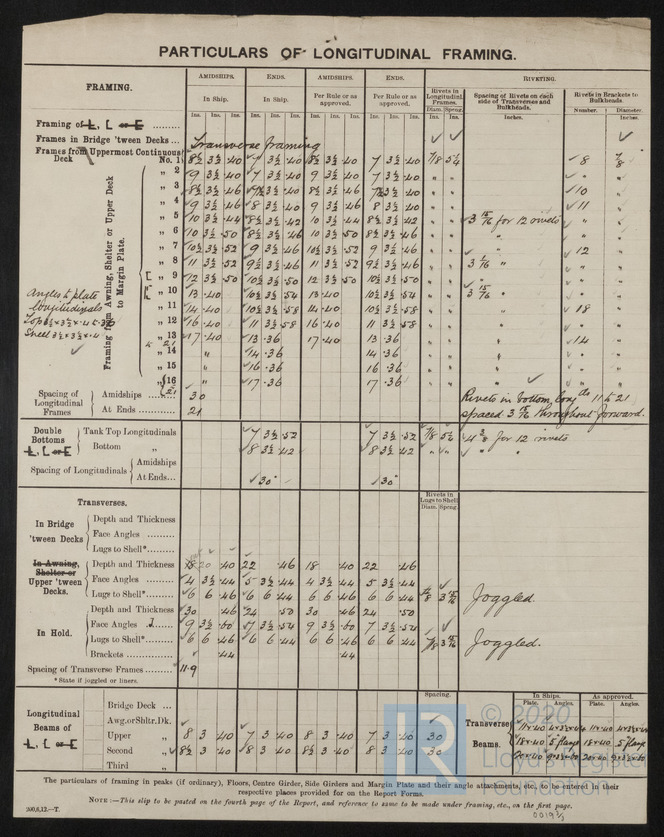 PARTICULARS OF LONGITUDINAL FRAMING.
FRAMING. AMIDSHIPS. ENDS. AMIDSHIPS. ENDS. RIVETING.
In Ship. In Ship. Per Rule or as approved. Per Rule or as approved. Rivets in Longitudinal Frames. Spacing of Rivets on each side of Transverses and Bulkheads. Rivets in Brackets to Bulkheads.
Diam. Spcng. Number. Diameter.
Ins. Ins. Ins. Ins. Ins. Ins. Ins. Ins. Ins. Ins. Ins. Ins. Ins. Ins. Inches. Inches.
Framing of L, [ or E
Frames in Bridge 'tween Decks ... Transverse framing
Frames from Uppermost Continuous Deck
Framing from Awning, Shelter or Upper Deck to Margin Plate.
No. 1 8½ 3½ .40 7 3½ .40 8½ 3½ .40 7 3½ .40 7/8 5¼ 8 7/8
" 2 9 3½ .40 7 3½ .40 9 3½ .40 7 3½ .40 " " " "
" 3 8½ 3½ .46 7½ 3½ .40 8½ 3½ .46 7½ 3½ .40 " " 10 "
" 4 9 3½ .46 8 3½ .40 9 3½ .46 8 3½ .40 " " 11 "
" 5 10 3½ .44 8½ 3½ .42 10 3½ .44 8½ 3½ .42 " " 3 15/16 for 12 rivets " "
" 6 10 3½ .50 8½ 3½ .46 10 3½ .50 8½ 3½ .46 " " " " "
" 7 10½ 3½ .52 9 3½ .46 10½ 3½ .52 9 3½ .46 " " " 12 "
" 8 11 3½ .52 9½ 3½ .46 11 3½ .52 9½ 3½ .46 " " 3 1/16 " " "
[ " 9 12 3½ .50 10½ 3½ .50 12 3½ .50 10½ 3½ .50 " "
" 10 13 .40 10½ 3½ .54 13 .40 10½ 3½ .54 " " 3 15/16 " "
" 11 14 .40 10½ 3½ .58 14 .40 10½ 3½ .58 " " " 18 "
" 12 16 .40 11 3½ .58 16 .40 11 3½ .58 " " " " "
" 13 17 .40 13 .36 17 .40 13 .36 " " " 14 "
" 14 " 14 .36 14 .36 " " " " "
" 15 " 16 .36 16 .36 " " " " "
" 16 " 17 .36 17 .36 " "
Angles to plate
longitudinals
Top 3½ x 3½ x .45-.36
Shell 3½ x 3½ x .4
Spacing of Longitudinal Frames
Amidships 30
At Ends 21
Rivets in bottom longds 11 to 21
spaced 3 15/16 throughout forward.
Double Bottoms L, [ or E
Tank Top Longitudinals 7 3½ .52 7 3½ .52 7/8 5¼ 4 3/8 for 12 rivets
Bottom " 8 3½ .42 8 3½ .42 " " " "
Spacing of Longitudinals
Amidships
At Ends... 30" 30"
Transverses. Rivets in Lugs to Shell
Diam. Spcng.
In Bridge 'tween Decks
Depth and Thickness
Face Angles
Lugs to Shell*
In Awning, Shelter or Upper 'tween Decks.
Depth and Thickness 20 .40 22 .46 18 .40 22 .46
Face Angles 4 3½ .44 5 3½ .44 4 3½ .44 5 3½ .44
Lugs to Shell* 6 6 .46 6 6 .44 6 6 .46 6 6 .44 7/8 3 15/16 Joggled.
In Hold.
Depth and Thickness 30 .46 24 .50 30 .46 24 .50
Face Angles 9 3½ .60 7 3½ .54 9 3½ .60 7 3½ .54
Lugs to Shell* 6 6 .46 6 6 .44 6 6 .46 6 6 .44 7/8 3 15/16 Joggled.
Brackets .44 .44
Spacing of Transverse Frames 11.9
* State if joggled or liners.
Longitudinal Beams of L, [ or E
Spacing.
Bridge Deck ...
Awg. or Shltr. Dk.
Upper " 8 3 .40 7 3 .40 8 3 .40 7 3 .40 30
Second " 8½ 3 .40 8 3 .40 8½ 3 .40 8 3 .40 30
Third "
Transverse Beams.
In Ships. As approved.
Plate. Angles. Plate. Angles.
5 flange 5 flange
The particulars of framing in peaks (if ordinary), Floors, Centre Girder, Side Girders and Margin Plate and their angle attachments, etc., to be entered in their
respective places provided for on the Report Forms.
NOTE :—This slip to be pasted on the fourth page of the Report, and reference to same to be made under framing, etc., on the first page.
200,6,13.—T.
LR
© 2020
Lloyd's Register
Foundation